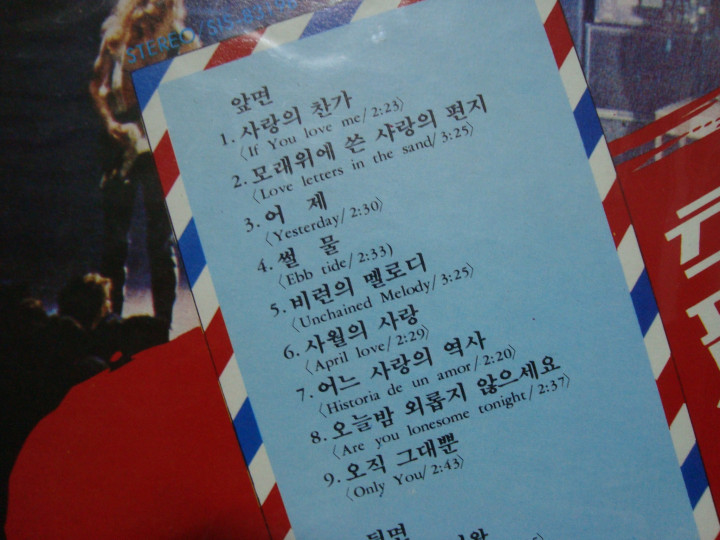 STEREO/SIS-83
앞면
1. 사랑의 찬가
〈If You love me/2:23〉
2. 모래위에 쓴 사랑의 편지
〈Love letters in the sand/3:25〉
3. 어 제
〈Yesterday/2:30〉
4. 썰 물
〈Ebb tide/2:33)
5. 비련의 멜로디
〈Unchained Melody/3:25〉
6. 사월의 사랑
〈April love/2:29〉
7. 어느 사랑의 역사
〈Historia de un amor/2:20〉
8. 오늘밤 외롭지 않으세요
〈Are you lonesome tonight/2:37〉
9. 오직 그대뿐
〈Only You/2:43〉
뒷면